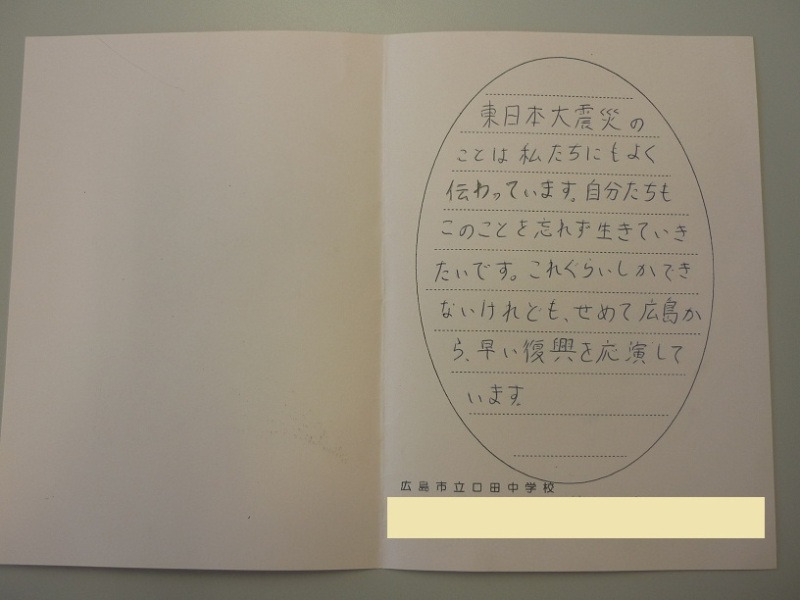 東日本大震災の
ことは私たちにもよく
伝わっています。自分たちも
このことを忘れず生きていき
たいです。これぐらいしかでき
ないけれども、せめて広島か
ら、早い復興を応演して
います。
広島市立口田中学校